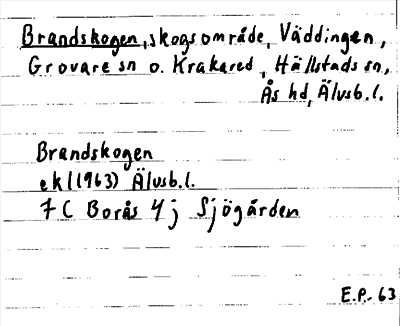 Brandskogen, skogsområde, Väddingen,
Grovare sn o. Krakared, Hällstads sn,
Ås hd, Älvsb.l.
Brandskogen
ekl(1963) Älvsb.l.
7 C Borås 4 j Sjögården
E.P.- 63